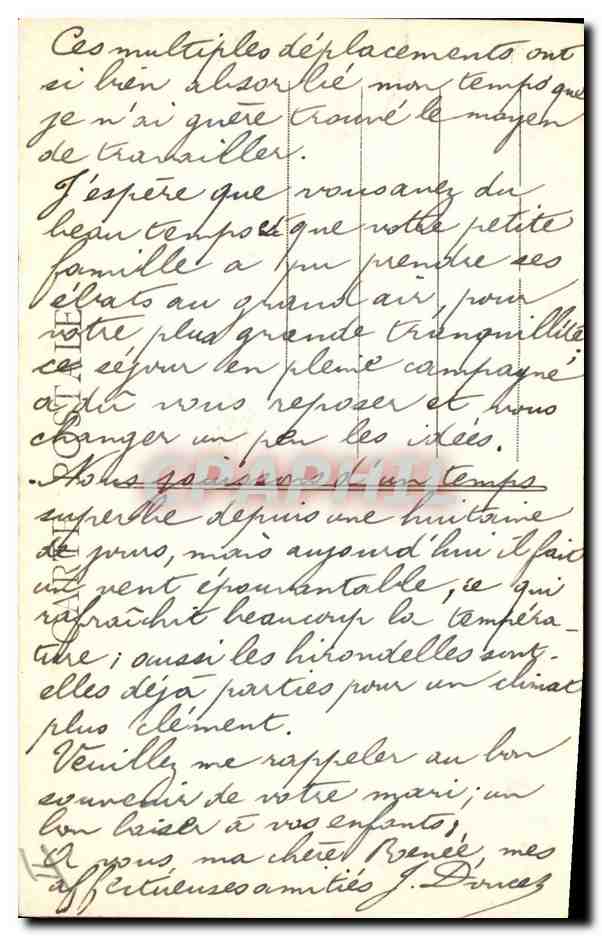 Ces multiples déplacements ont
si bien absorbé mon temps que
je n'ai guère trouvé le moyen
de travailler.
J'espère que vous avez du
beau temps et que votre petite
famille a pu prendre ses
ébats au grand air, pour
votre plus grande tranquillité;
ce séjour en pleine campagne
a dû vous reposer et vous
changer un peu les idées.
Nous jouissons d'un temps
superbe depuis une huitaine
de jours, mais aujourd'hui il fait
un vent épouvantable, ce qui
rafraîchit beaucoup la tempéra-
ture; aussi les hirondelles sont-
elles déjà parties pour un climat
plus clément.
Veuillez me rappeler au bon
souvenir de votre mari; un
bon baiser à vos enfants,
A vous, ma chère Renée, mes
affectueuses amitiés J. Doucez
CARTE POSTALE
CPAPHIL